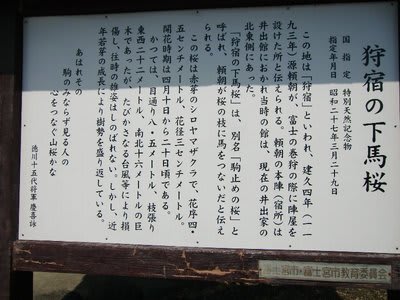 狩宿の下馬桜
国指定 特別天然記念物
指定年月日 昭和二十七年三月二十九日
この地は「狩宿」といわれ、建久四年（一一
九三年）源頼朝が、富士の巻狩の際に陣屋を
設けた所と伝えられる。頼朝の本陣（宿所）は
井出館におかれ当時の館は、現在の井出家の
北東側にあった。
「狩宿の下馬桜」は、別名「駒止めの桜」と
呼ばれ、頼朝が桜の枝に馬をつないだと伝え
られる。
この桜は赤芽のシロヤマザクラで、花序四・
五センチメートル、花径四・五センチメートル。
開花時期は四月十日から二十日頃である。
かつては、目通り八・五メートル、枝張り
東西二十二メートル、南北十六メートルの巨
木であったが、たびかさなる台風等により損
傷し、往時の雄姿はしのばれない。しかし、近
年若芽の成長により樹勢を盛り返している。
あはれその
駒のみならず見る人の
心をつなぐ山桜かな
徳川十五代将軍 慶喜詠
富士宮市・富士宮市教育委員会